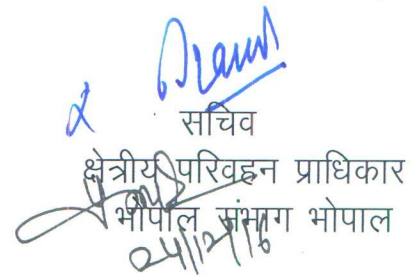 सचिव
क्षेत्रीय परिवहन प्राधिकार
भोपाल संभाग भोपाल